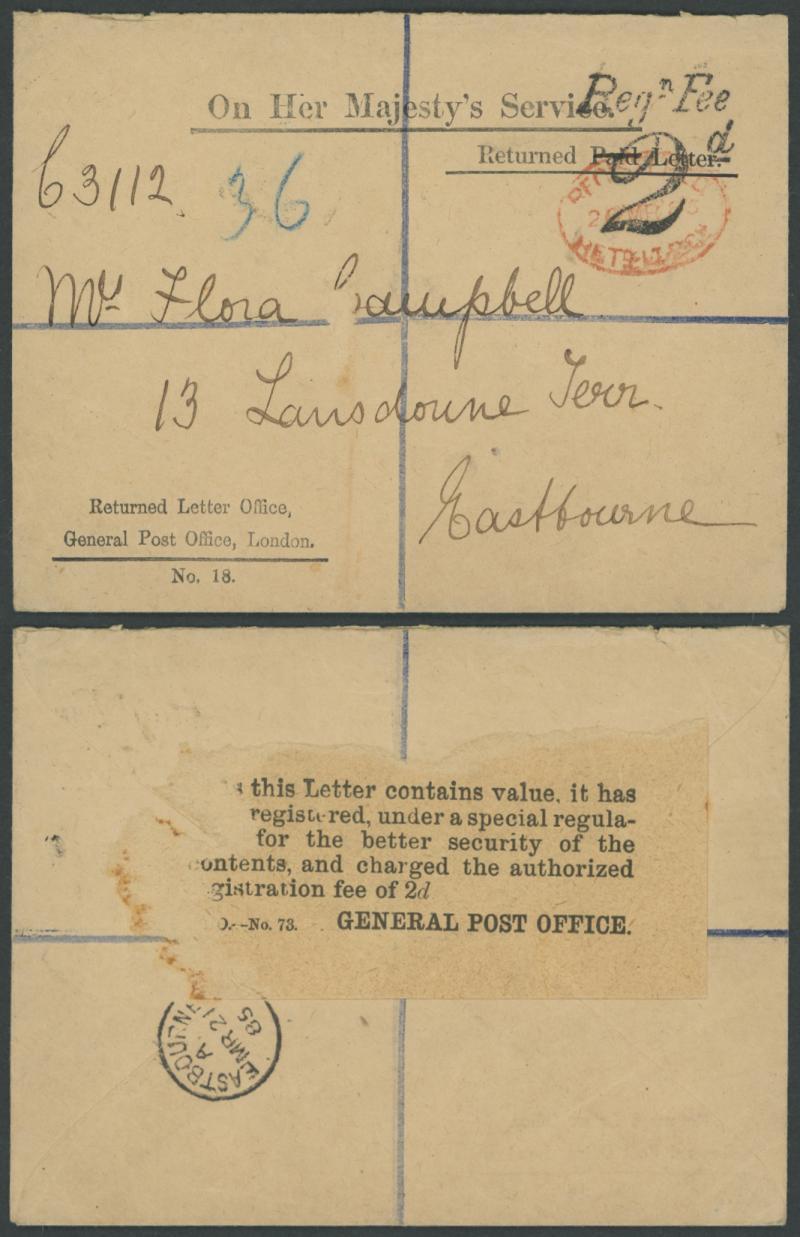 On Her Majesty's Service.
Regn Fee
2d
Returned Paid Letter.
63112.
36
Mrs Flora Campbell
13 Lansdowne Terr.
Eastbourne
Returned Letter Office,
General Post Office, London.
No. 18.
this Letter contains value, it has
registered, under a special regula-
for the better security of the
ontents, and charged the authorized
gistration fee of 2d
No. 73. GENERAL POST OFFICE.
EASTBOURNE
A
MR 21
85